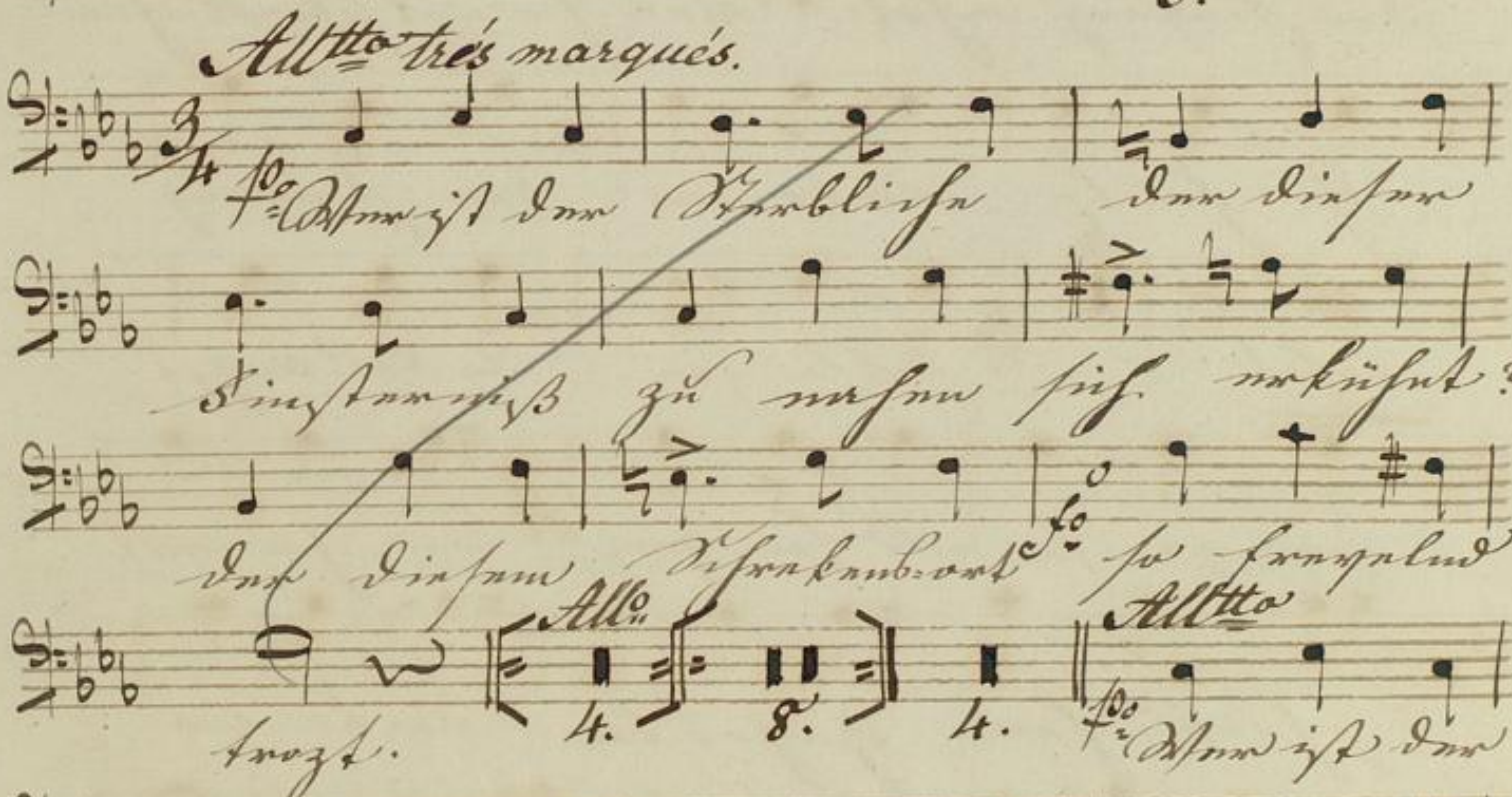 Alltto très marqués.
3/4 po Wer ist der Sterbliche der dieser
Finsterniß zu nahen sich erkühnt?
der diesem Schrekens-ort fo so frevelnd
Allo. Alltto
trozt. 4. 8. 4. po Wer ist der